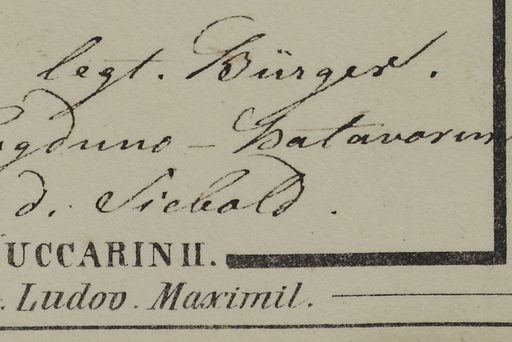 legt. Bürger.
ugduno-Batavorum
d. Siebold.
UCCARINII.
. Ludov. Maximil.